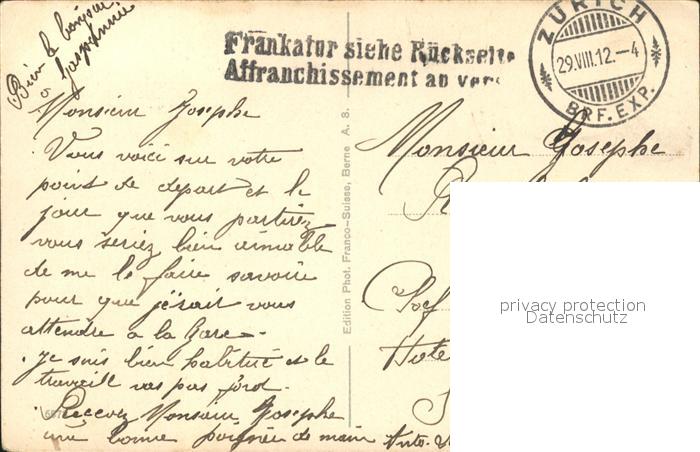 Bien le bonjour
a Josephine
Frankatur siehe Rückseite
Affranchissement au vers
ZÜRICH
29.VIII.12.–4
BRF. EXP.
Monsieur Josephe
Vous voici sur votre
point de depart et le
jour que vous partirez
vous seriez bien aimable
de me le faire savoire
pour que j'érait vous
attendre a la Gare.
Je suis bien habitué et le
travaill vas pas fort.
Recevez Monsieur Josephe
une bonne poignée de main
Edition Phot. Franco-Suisse, Berne A. S.
Monsieur Josephe
Hote
privacy protection
Datenschutz